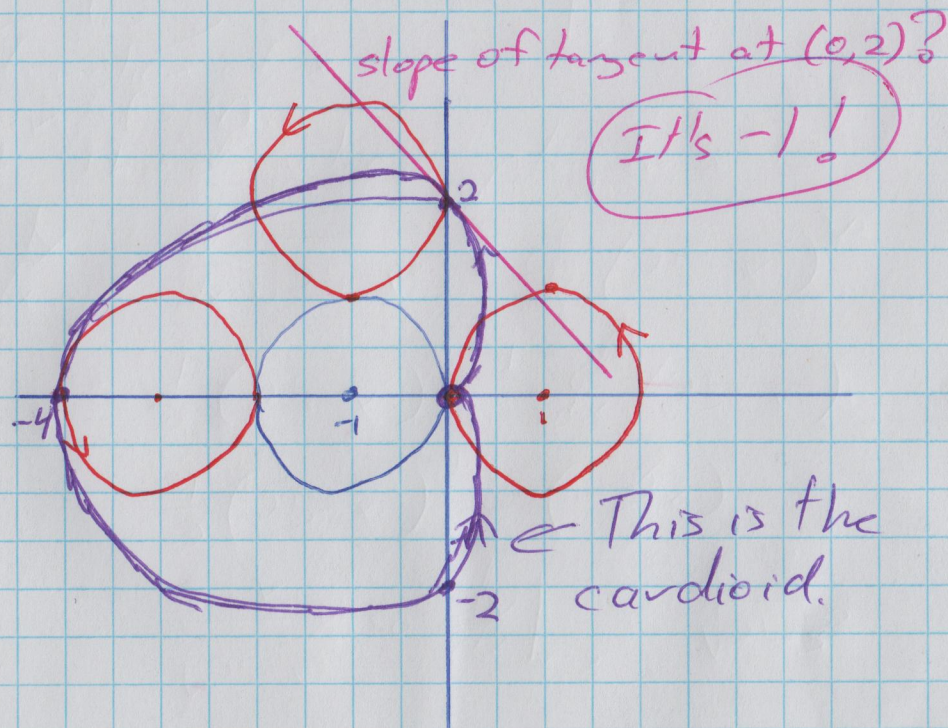 slope of tangent at (0,2)?
It's -1!
2
-4
-1
1
← This is the
cardioid.
-2